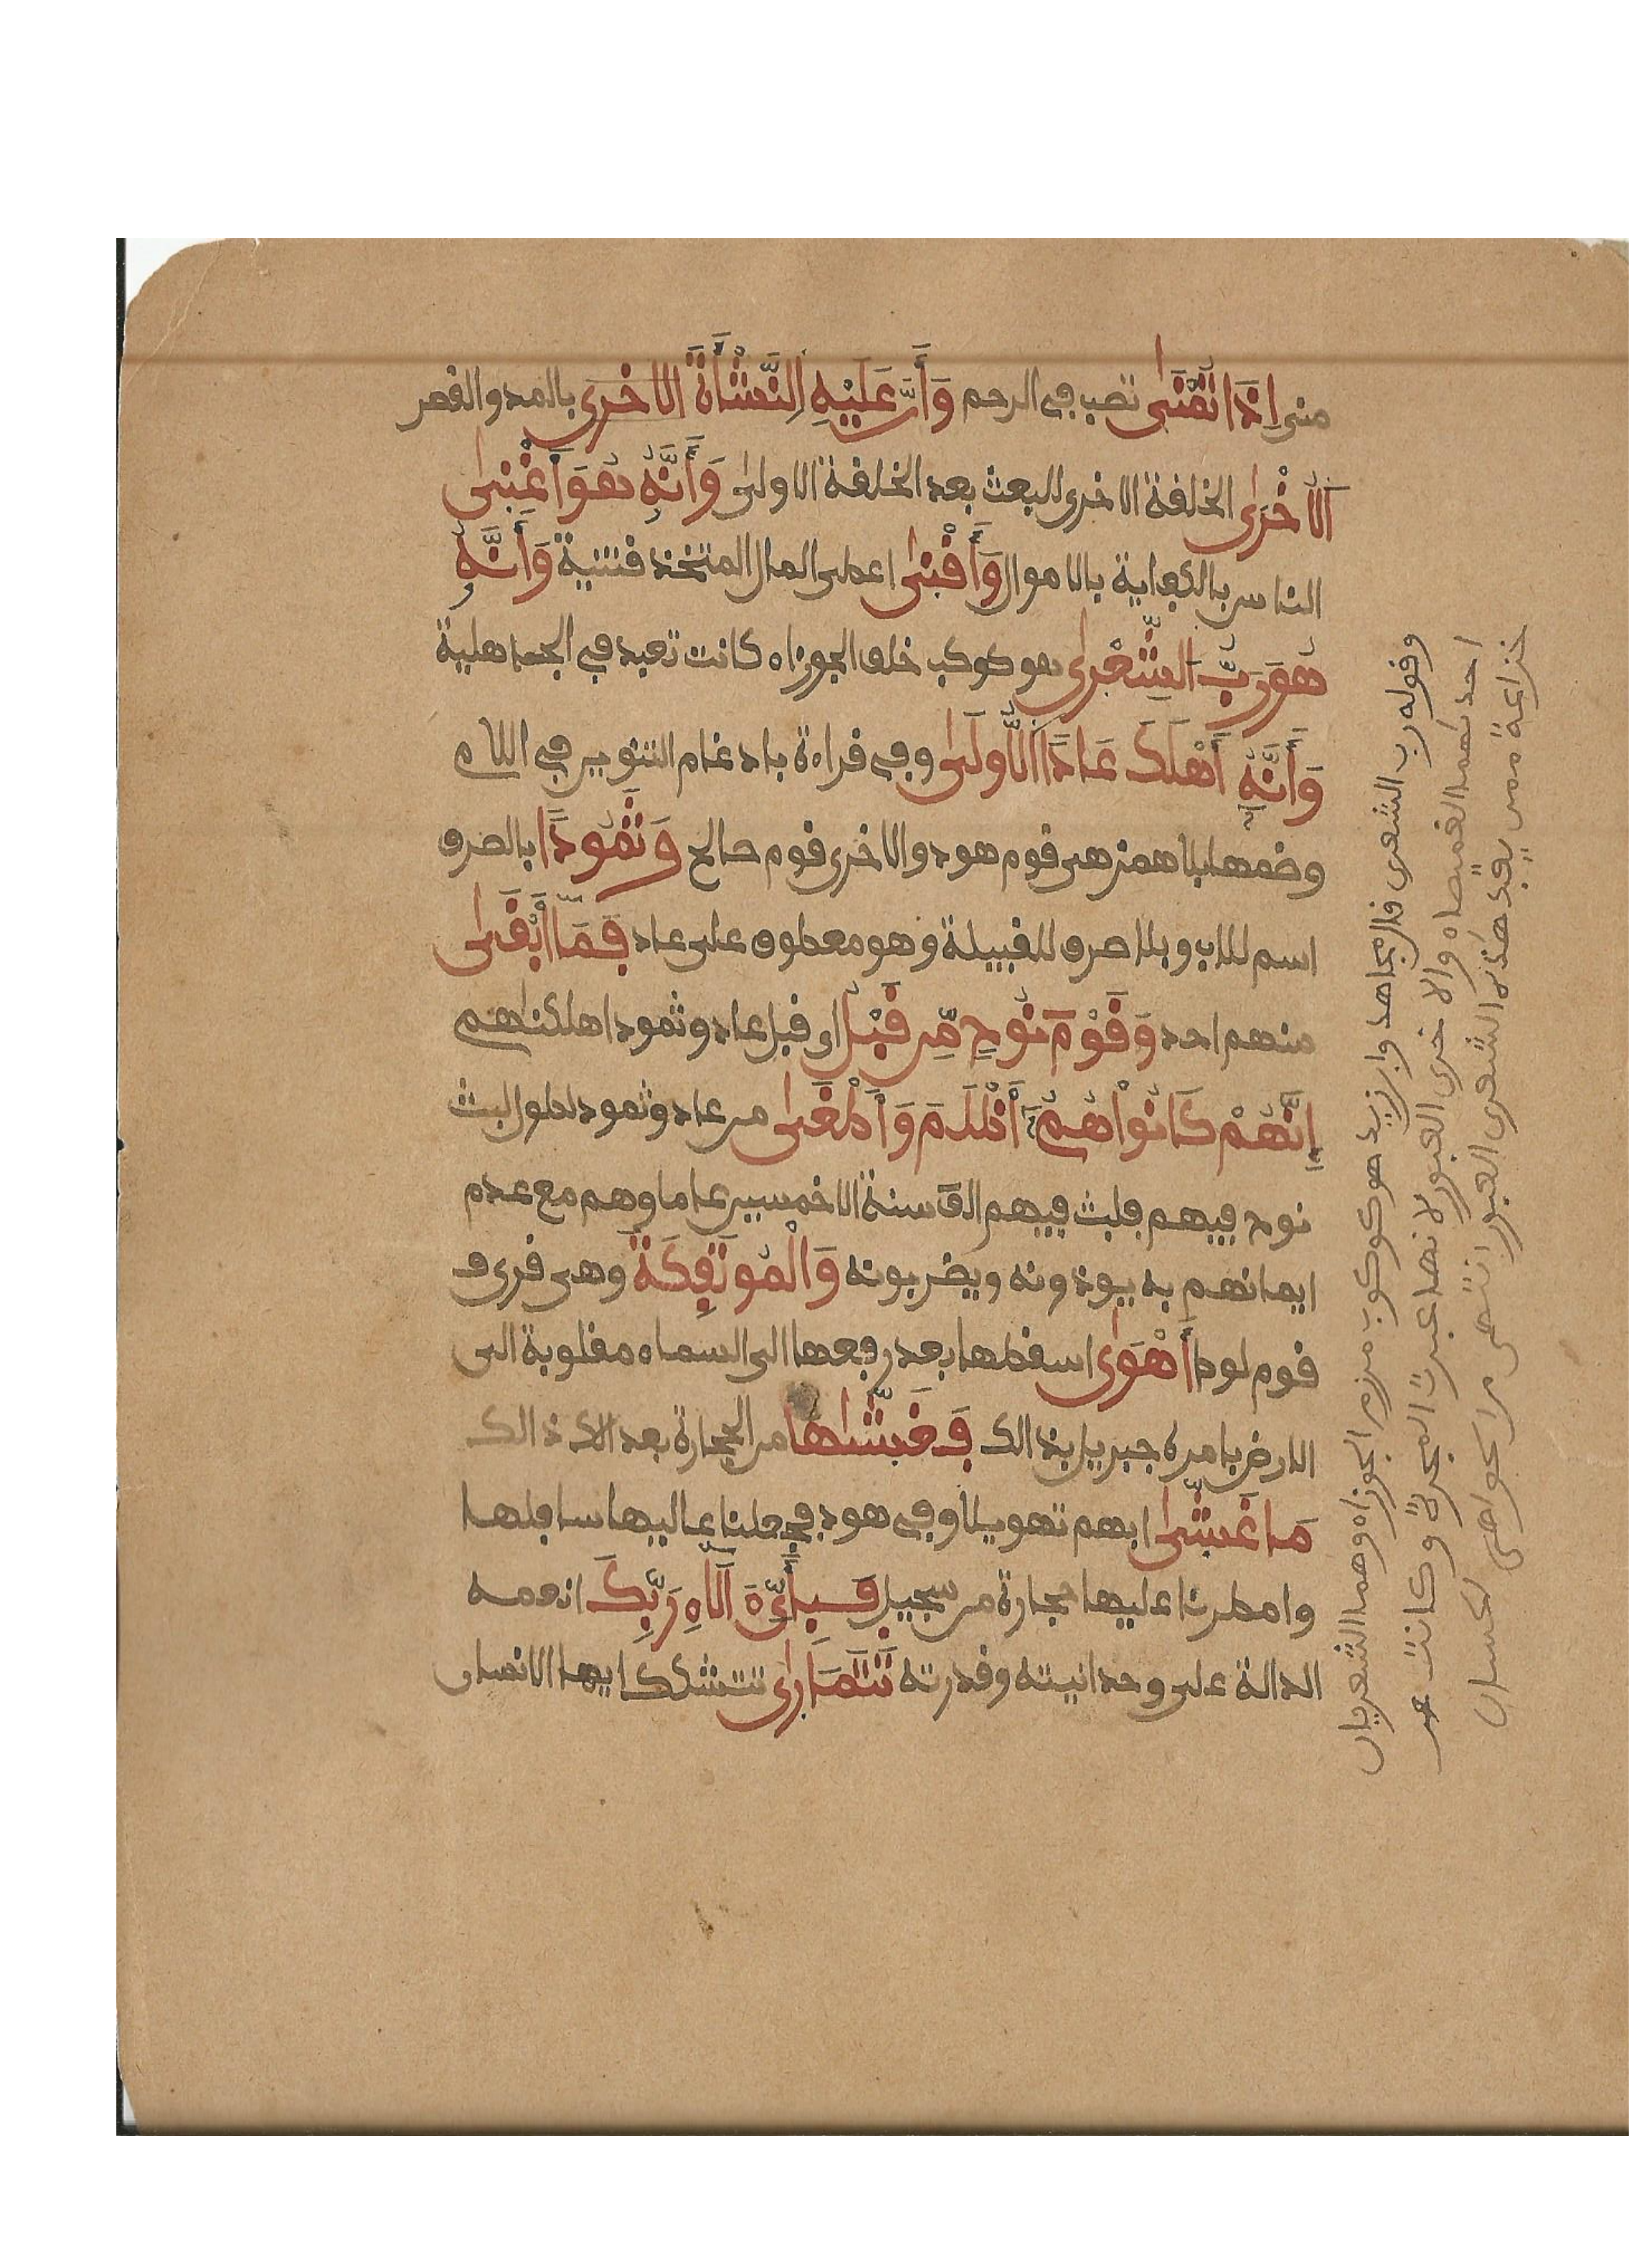 منى إِذَا تُمْنَىٰ تصب في الرحم وَأَنَّ عَلَيْهِ اِلنَّشْأَةَ الاخْرَى بالمد والقصر
اَلُاخْرَىٰ الخلقة الاخرى للبعث بعد الخلقة الاولىٰ وَأَنَّهُ هُوَ أَغْنِىٰ
الناس بالكفاية بالاموال وَأَقْنِىٰ اعطى المال المتخذ قنتنية وَأَنَّهُ
هُوَ رَبُّ اَلشِّعْرِىٰ هو كوكب خلف الجوزاء كانت تعبد في الجاهلية
وَأَنَّهُ أَهْلَكَ عَادًا اَلُّاولَىٰ وفي قراءة بادغام التنوين في اللام
وضمها بلا همز هى قوم هود والاخرى قوم صالح وَثَمُودًا بالصرف
اسم للاب وبلا صرف للقبيلة وهو معطوف على عاد فَمَا أَبْقَىٰ
منهم احد وَقَوْمَ نُوحٍ مِّن قَبْلُ اى قبل عاد وثمود اهلكناهم
إِنَّهُمْ كَانُواْ هُمُ أَظْلَمَ وَأَطْغَىٰ من عاد وثمود لطول لبث
نوح فيهم فلبث فيهم الف سنة الا خمسين عاما وهم مع عدم
ايمانهم به يوذونه ويضربونه وَالْمُوتَفِكَةَ وهى قرى ف
قوم لوط أَهْوَىٰ اسقطها بعد رفعها الى السماء مقلوبة الى
الارض بامره جبريل بذالك فَغَشَّىٰهَا من الحجارة بعد الاكذالك
مَا غَشّىٰ ابهم تهويلا وفي هود فجعلنا عاليها سافلها
وامطرنا عليها حجارة من سجيل فَبِأَيِّ ءَالَاءِ رَبِّكَ انعمه
الدالة على وحدانيته وقدرته تَتَمَارَىٰ تتشكك ايها الانسان
وقوله رب الشعرى قال مجاهد وابن زيد هو كوكب مرزم الجوزاء وهما الشعريان
احدهما القميصاء والاخرى العبور لانها عبرت المجرة وكانت
خزاعة ممن يعبد هذه الشعرى العبور انتهى من الجواهر الحسان